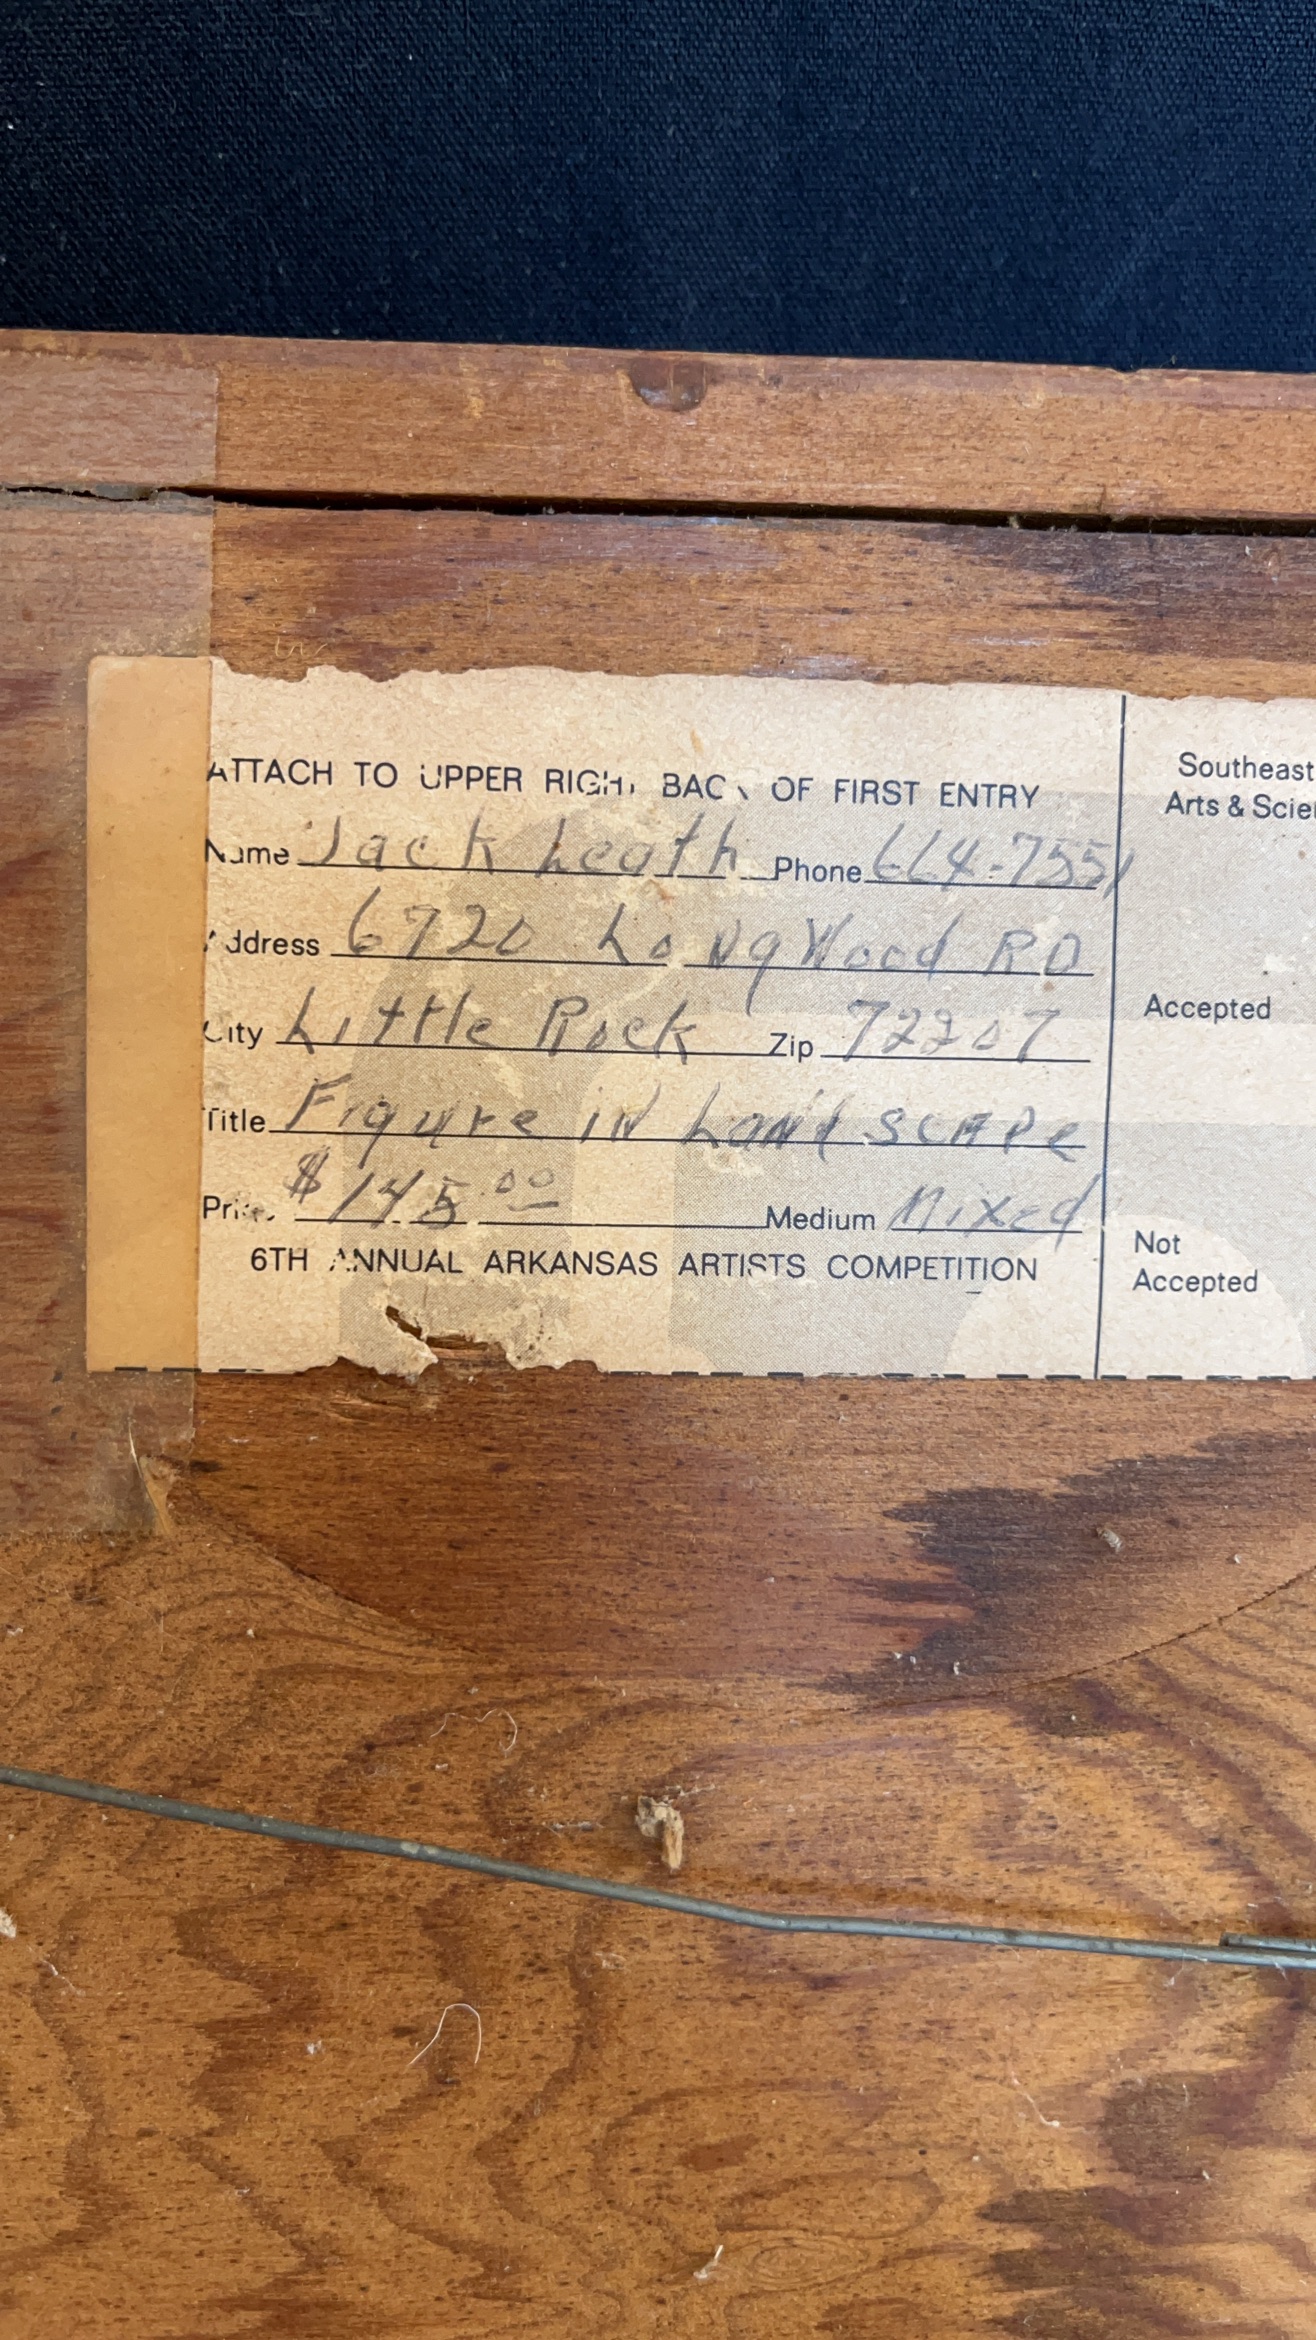 ATTACH TO UPPER RIGHT BACK OF FIRST ENTRY
Name Jack Leath Phone 664-7551
Address 6920 LongWood RD
City Little Rock Zip 72207
Title Figure in Landscape
Price $145.00 Medium Mixed
6TH ANNUAL ARKANSAS ARTISTS COMPETITION
Southeast
Arts & Scie
Accepted
Not
Accepted